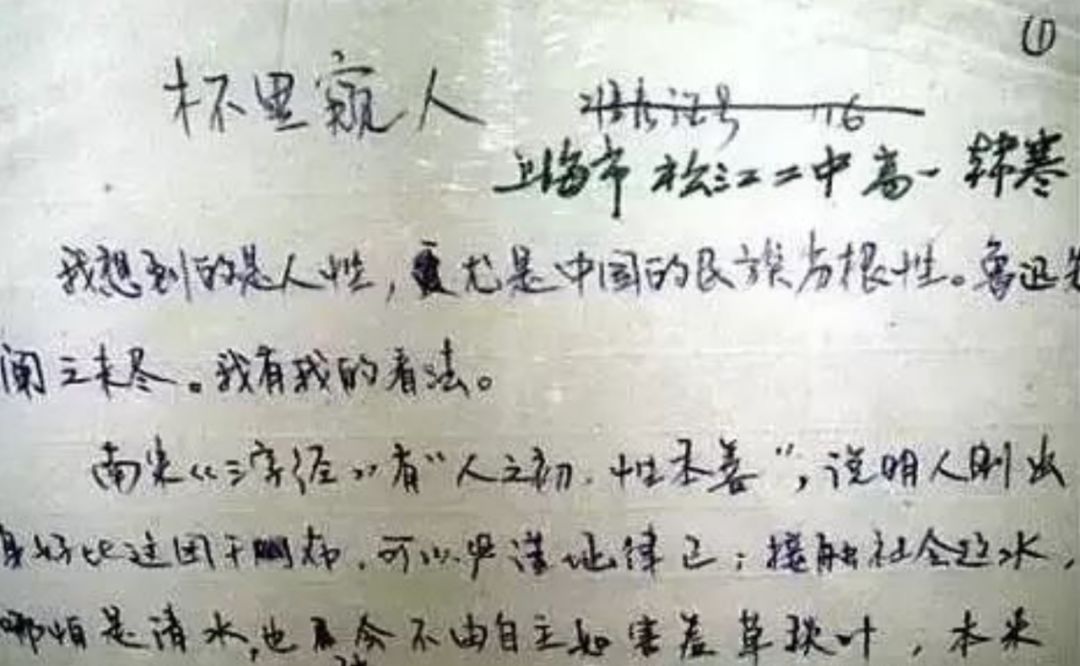 ①
杯里窥人
准考证号 116
上海市 松江二中 高一 韩寒
我想到的是人性,尤是中国的民族劣根性。鲁迅先
阐之未尽。我有我的看法。
南宋《三字经》有“人之初,性本善”,说明人刚出
身好比这团干布,可以严谨地律己;接触社会这水,
哪怕是清水,也会不由自主如害羞草铁叶,本来